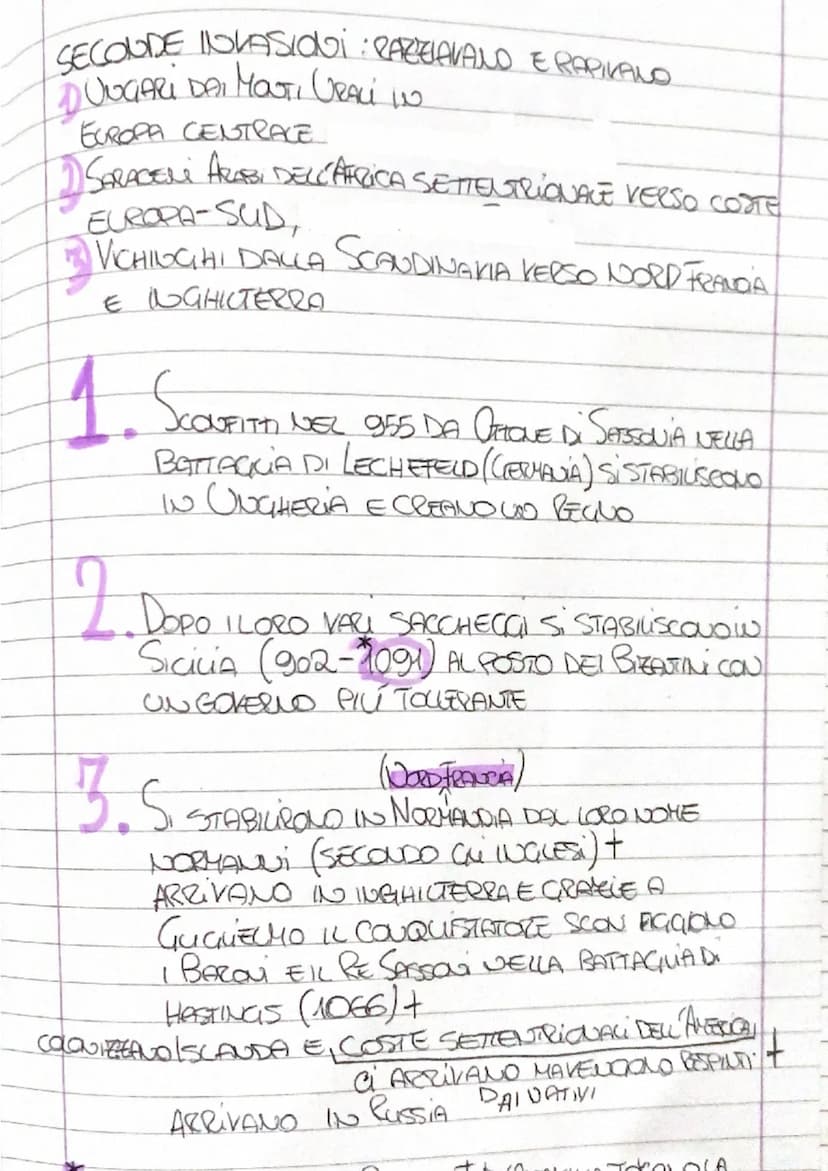 SECONDE INVASIONI : RAZZIAVANO E RAPIVANO
1) UNGARI DAI MONTI URALI IN
EUROPA CENTRALE
2) SARACENI ARABI DELL'AFRICA SETTENTRIONALE VERSO COSTE
EUROPA-SUD,
3) VICHINGHI DALLA SCANDINAVIA VERSO NORD FRANCIA
E INGHILTERRA
1. SCONFITTI NEL 955 DA OTTONE DI SASSONIA NELLA
BATTAGLIA DI LECHEFELD (GERMANIA) SI STABILISCONO
IN UNGHERIA E CREANO UN REGNO
2. DOPO I LORO VARI SACCHEGGI SI STABILISCONO IN
SICILIA (902-*1091) AL POSTO DEI BIZANTINI CON
UN GOVERNO PIÚ TOLLERANTE
(NORD FRANCIA)
3. SI STABILIRONO IN NORMANDIA DAL LORO NOME
NORMANNI (SECONDO GLI INGLESI) +
ARRIVANO IN INGHILTERRA E GRAZIE A
GUGLIELMO IL CONQUISTATORE SCONFIGGONO
I BARONI E IL RE SASSONI NELLA BATTAGLIA DI
HASTINGS (1066) +
COLONIZZANO ISLANDA E, COSTE SETTENTRIONALI DELL'AMERICA,
CI ARRIVANO MA VENGONO RESPINTI +
DAI NATIVI
ARRIVANO IN RUSSIA
*